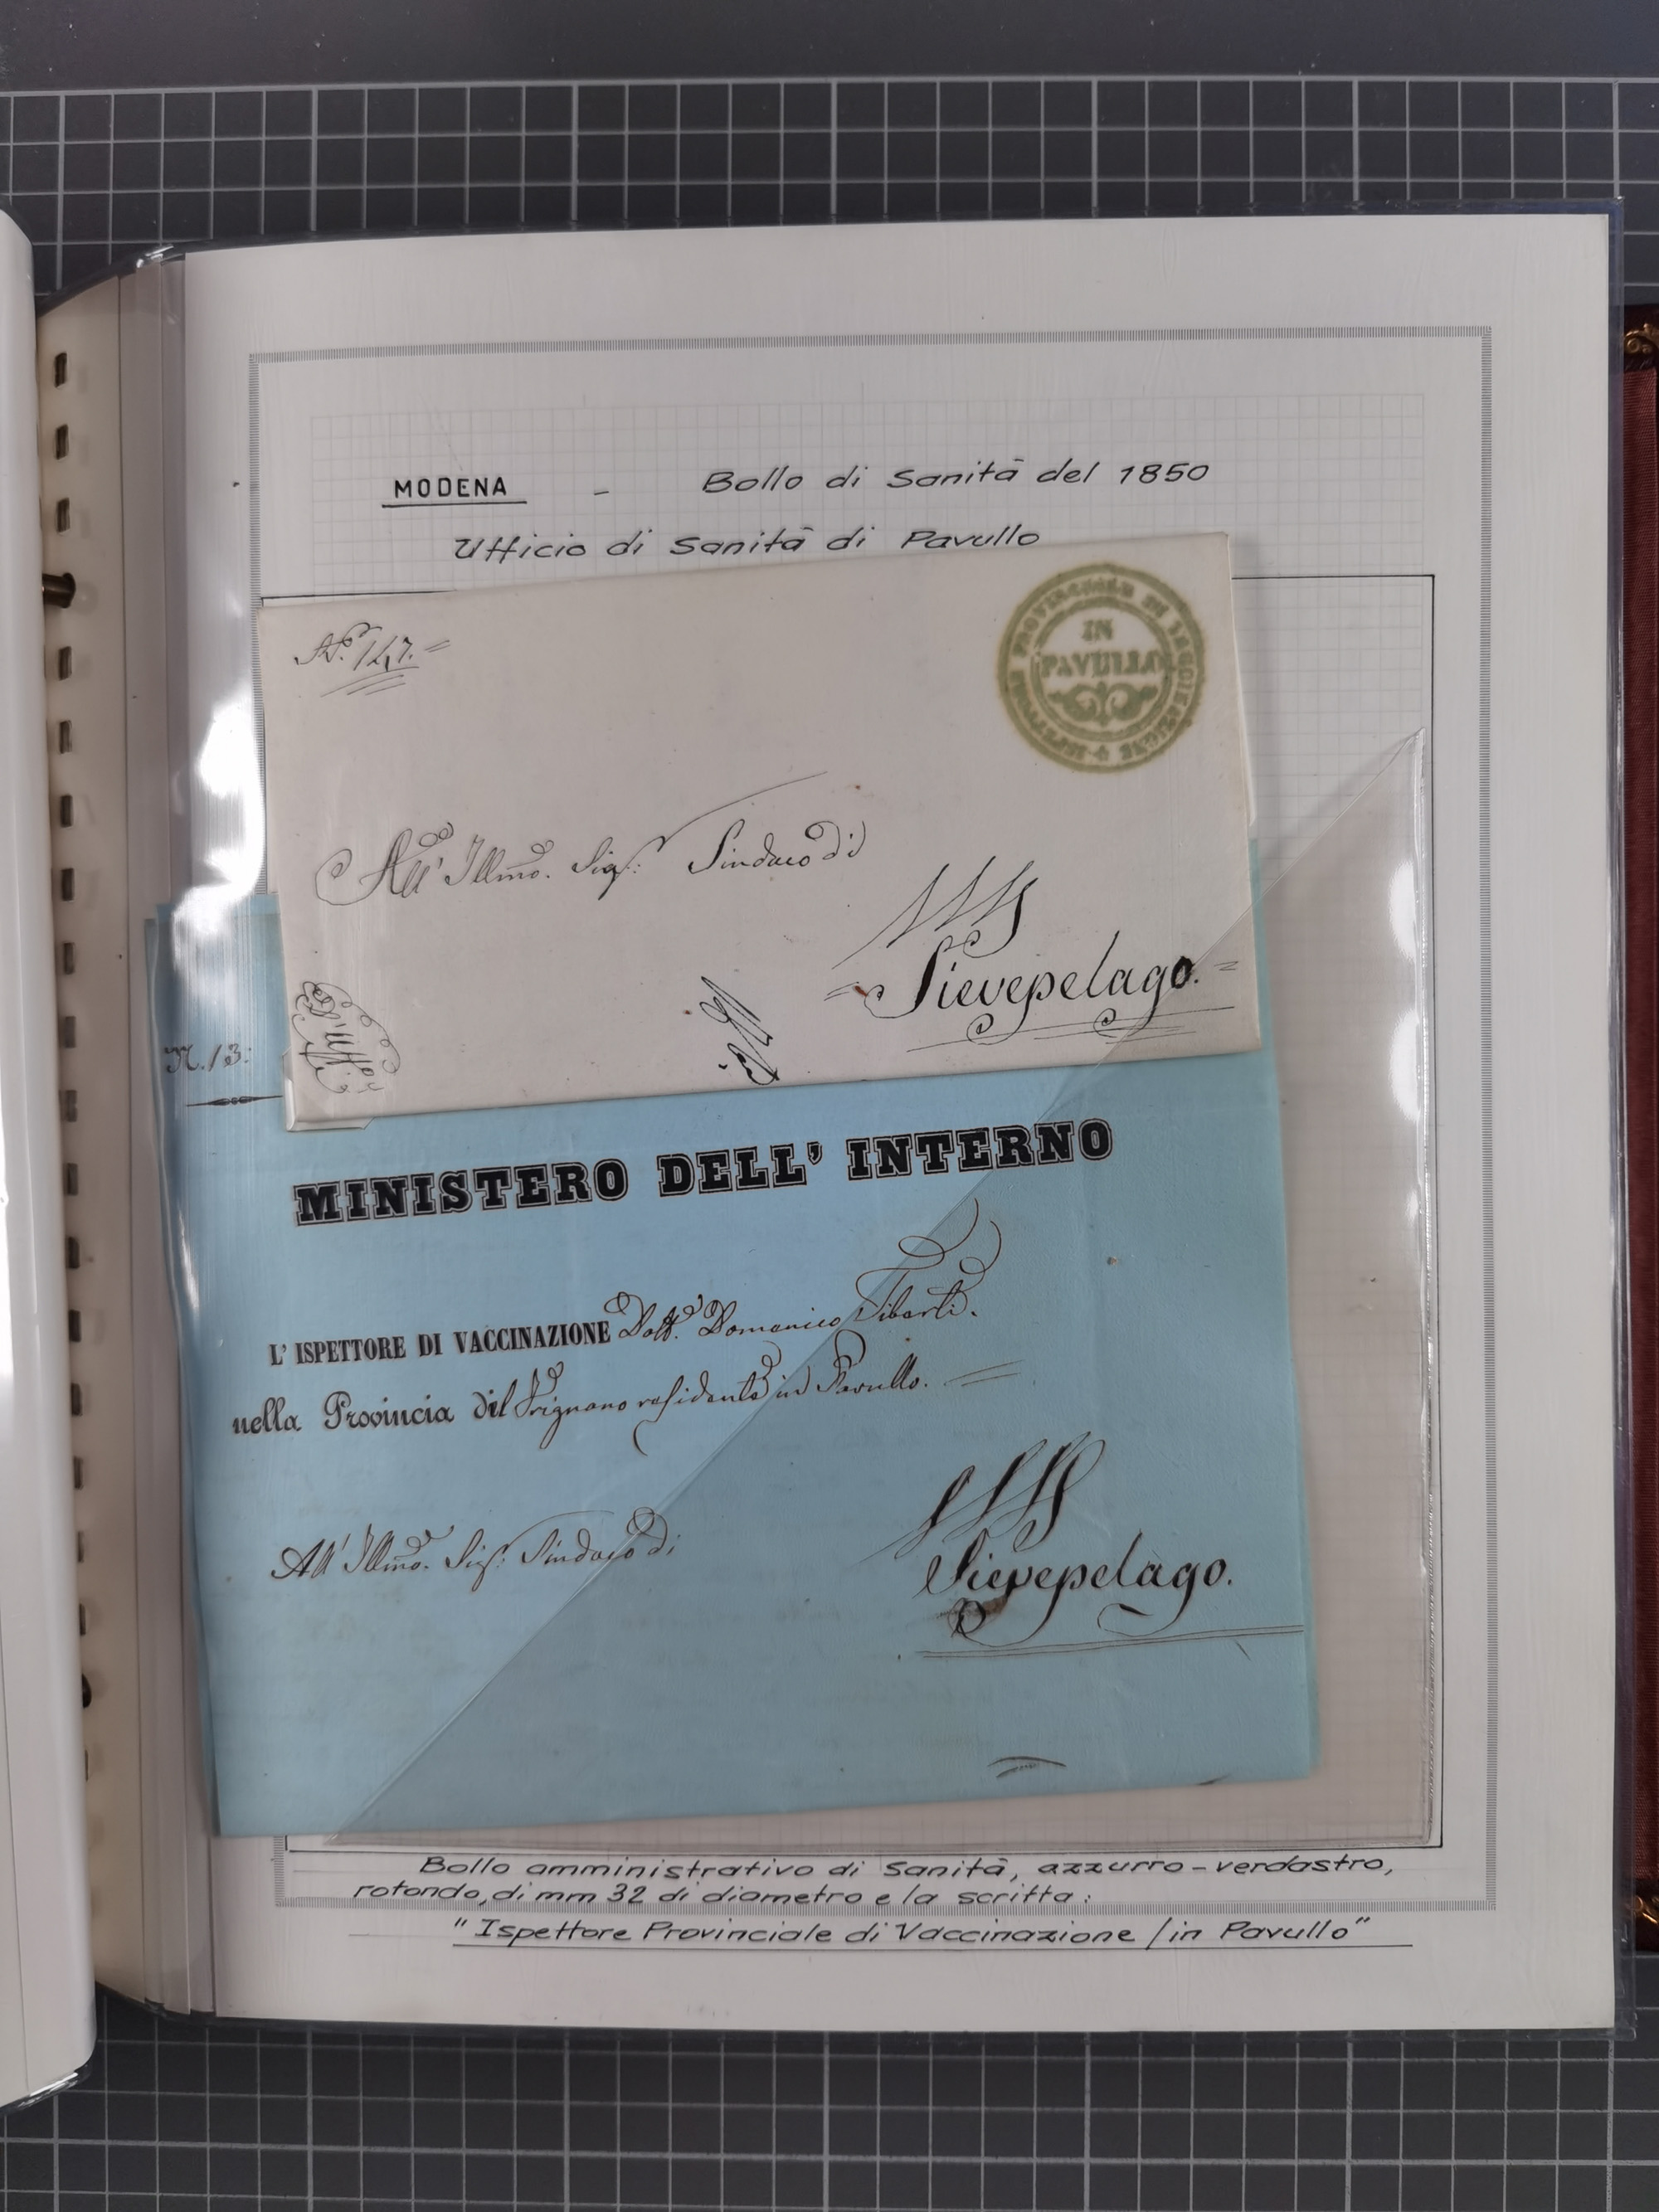 MODENA - Bollo di Sanità del 1850
Ufficio di Sanità di Pavullo
N.° 147.=
ISPETTORE PROVINCIALE DI VACCINAZIONE
IN
PAVULLO
All' Illmo. Sig.r Sindaco di
= Pievepelago. =
D'Uff.o
N. 13:
MINISTERO DELL' INTERNO
L' ISPETTORE DI VACCINAZIONE Dott. Domenico
nella Provincia del Frignano residente in Pavullo. =
All' Illmo. Sig.r Sindaco di
Pievepelago.
Bollo amministrativo di Sanità, azzurro-verdastro,
rotondo, di mm 32 di diametro e la scritta:
"Ispettore Provinciale di Vaccinazione / in Pavullo"